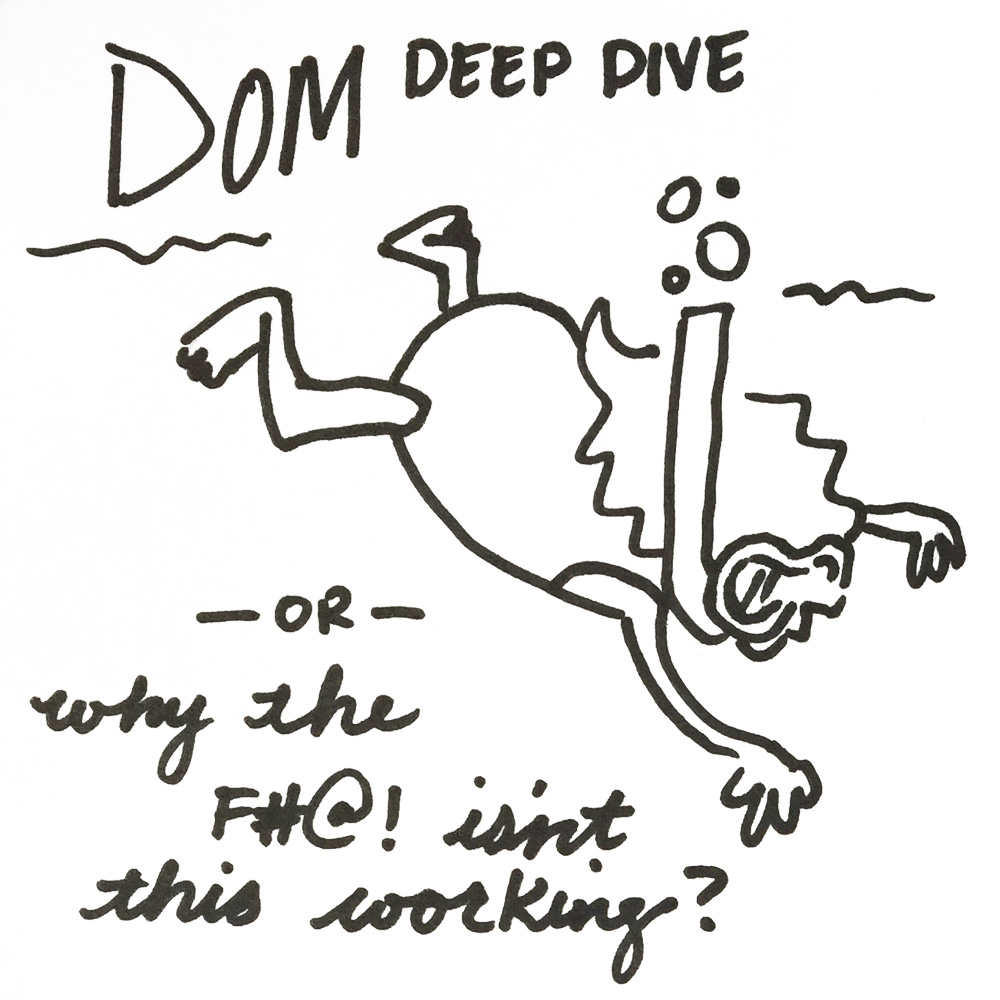 DOM DEEP DIVE
— OR —
why the
F#@! isn't
this working?